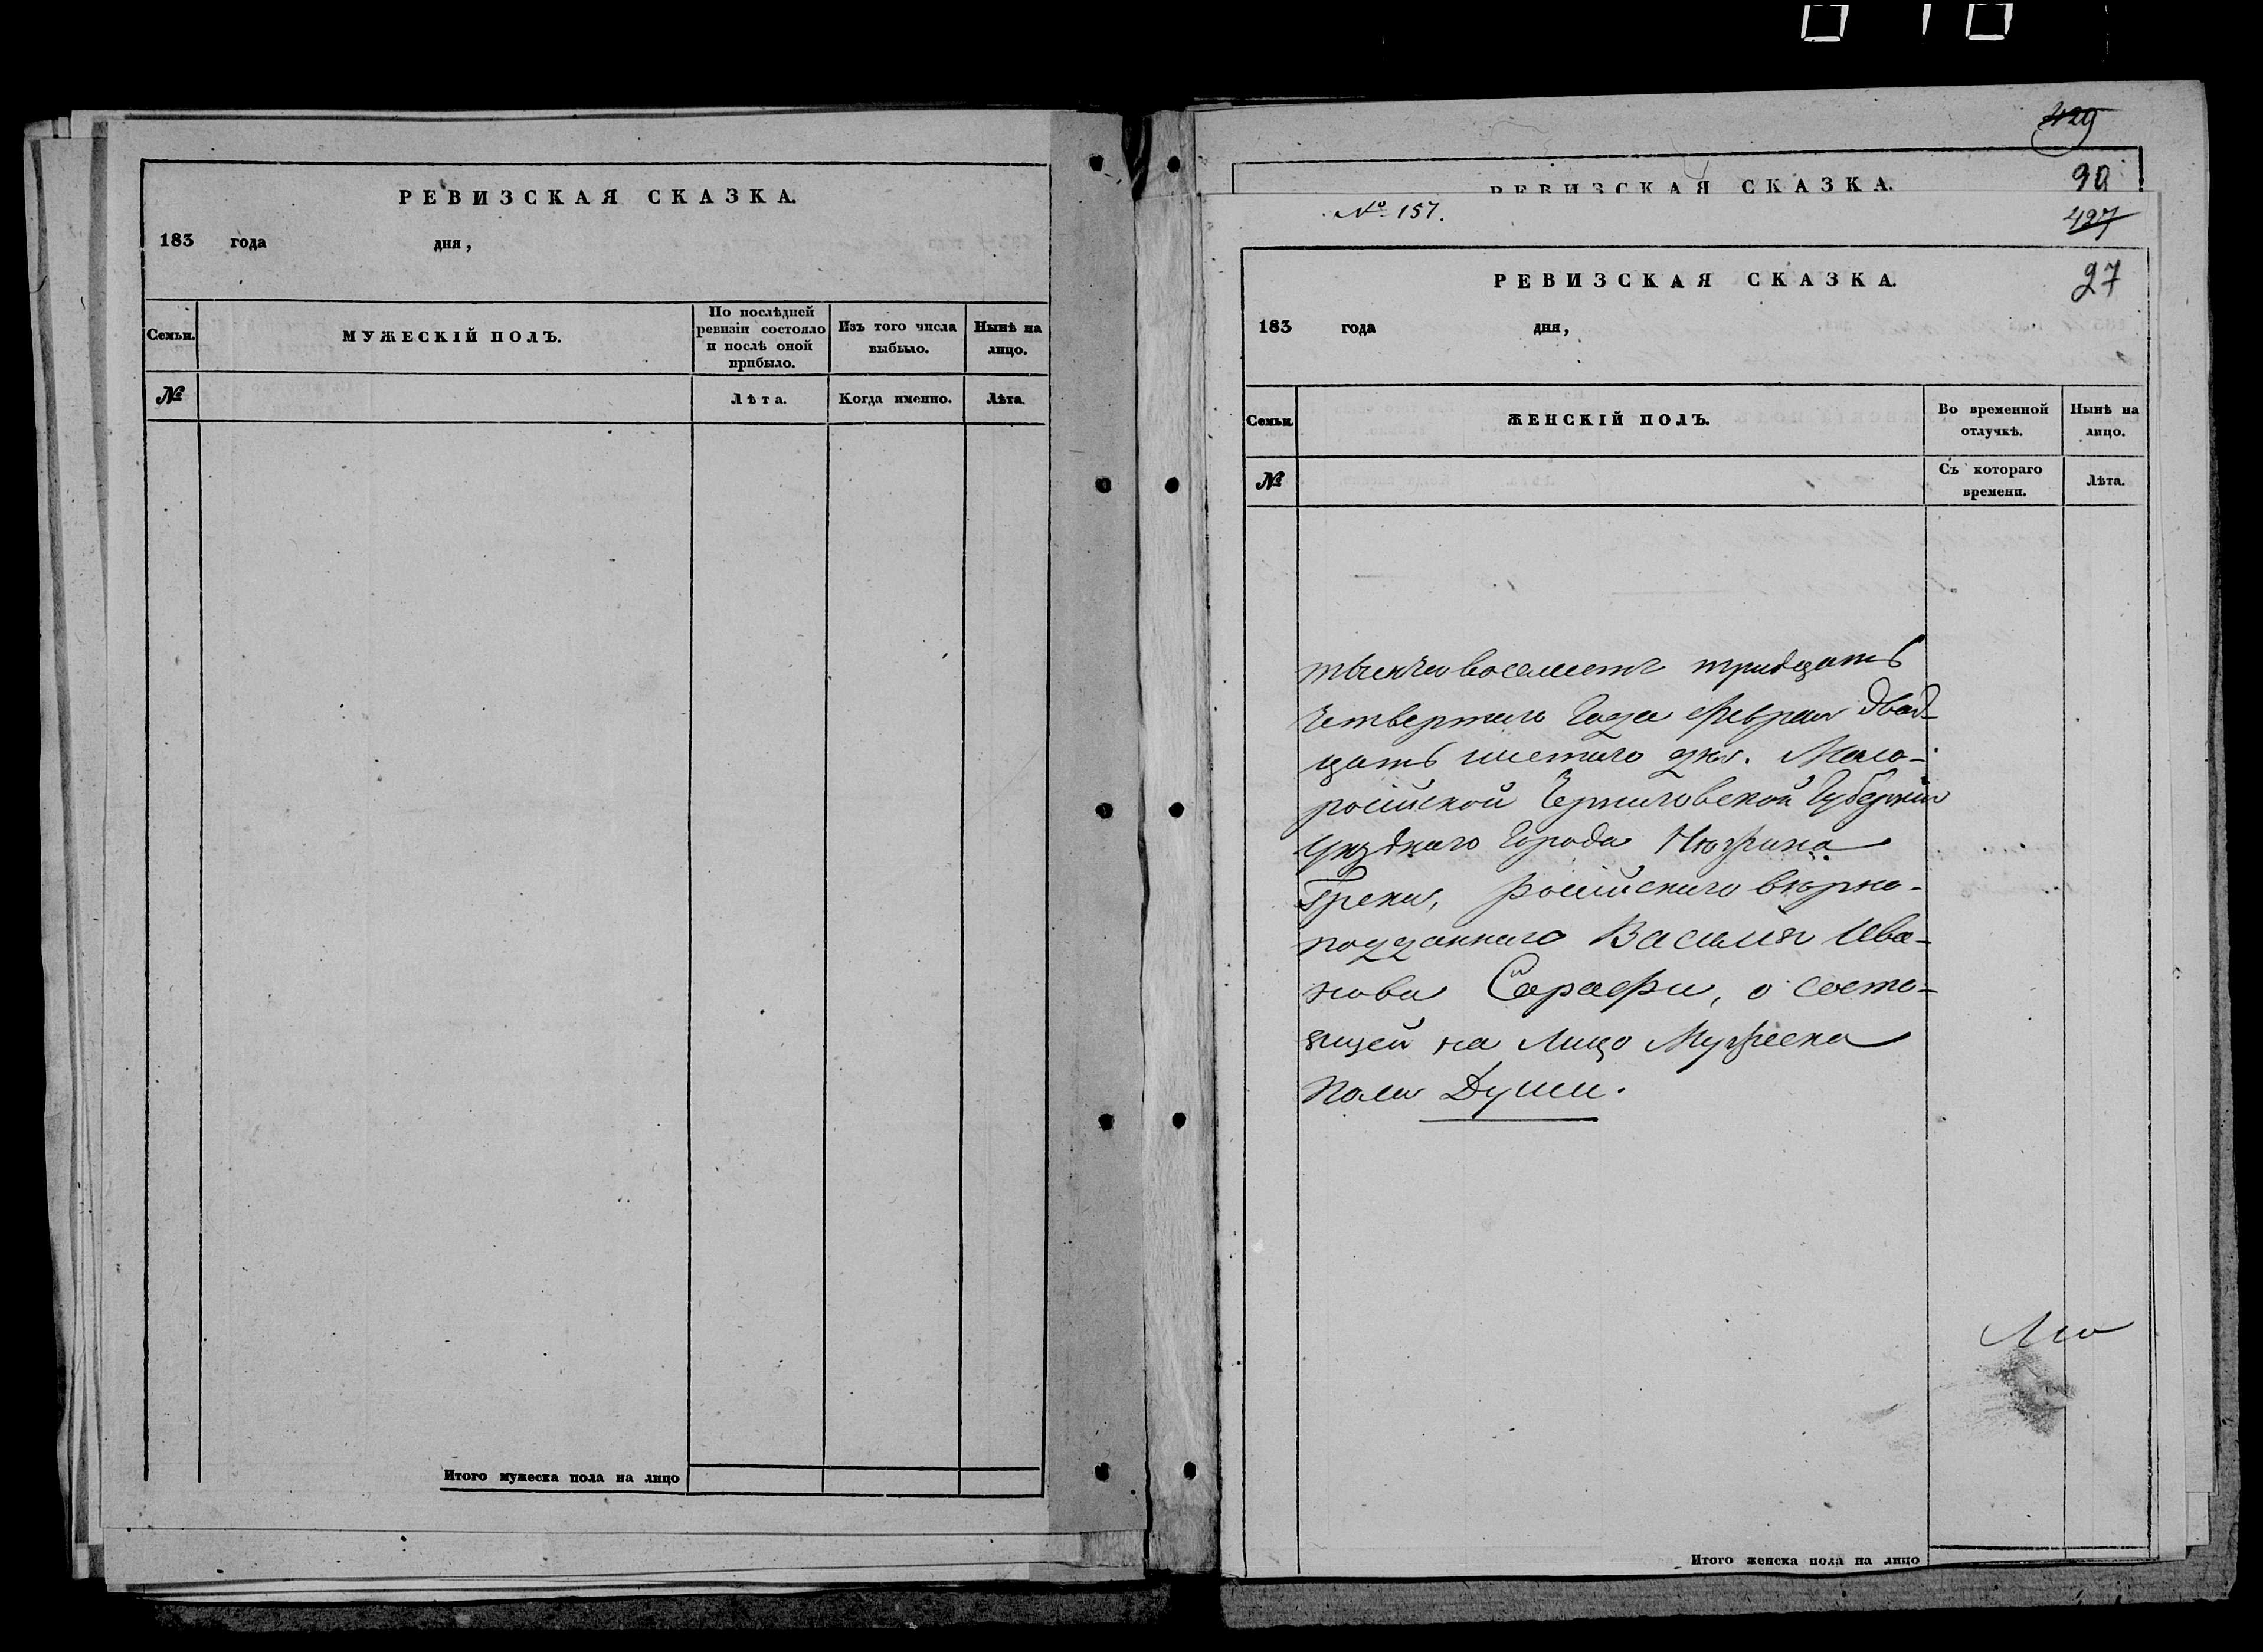 РЕВИЗСКАЯ СКАЗКА.
183 года дня,
Семьи.
МУЖЕСКІЙ ПОЛЪ.
По послѣдней ревизіи состояло и послѣ оной прибыло.
Изъ того числа выбыло.
Нынѣ на лицо.
№
Лѣта.
Когда именно.
Лѣта.
Итого мужеска пола на лицо
429
РЕВИЗСКАЯ СКАЗКА.
90
№ 157.
427
РЕВИЗСКАЯ СКАЗКА.
27
183 года дня,
Семьи.
ЖЕНСКІЙ ПОЛЪ.
Во временной отлучкѣ.
Нынѣ на лицо.
№
Съ котораго времени.
Лѣта.
тысяча восемсотъ тридцать
четвертаго года февраля двад-
цать шестаго дня. Мало-
російской Черниговской Губерніи
уѣзднаго города Нѣжина
Грека, росiйскаго вѣрно-
подданнаго Василія Ива-
нова Сарафи, о состо-
ящей на лицо мужеска
пола Души.
Итого женска пола на лицо